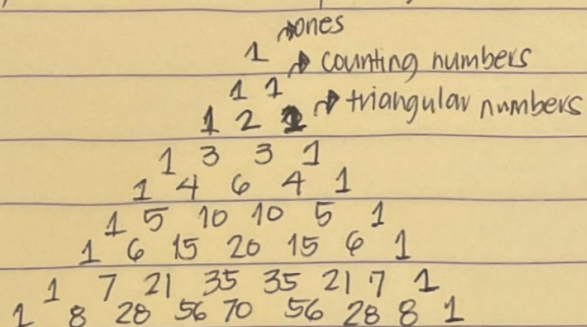 →ones
1 → counting numbers
1 1 → triangular numbers
1 2 1
1 3 3 1
1 4 6 4 1
1 5 10 10 5 1
1 6 15 20 15 6 1
1 7 21 35 35 21 7 1
1 8 28 56 70 56 28 8 1